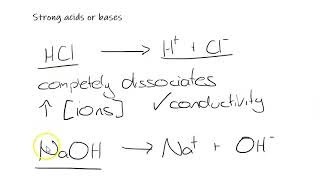 Strong acids or bases
HCl → H⁺ + Cl⁻
completely dissociates
↑ [ions] ✓conductivity
NaOH → Na⁺ + OH⁻